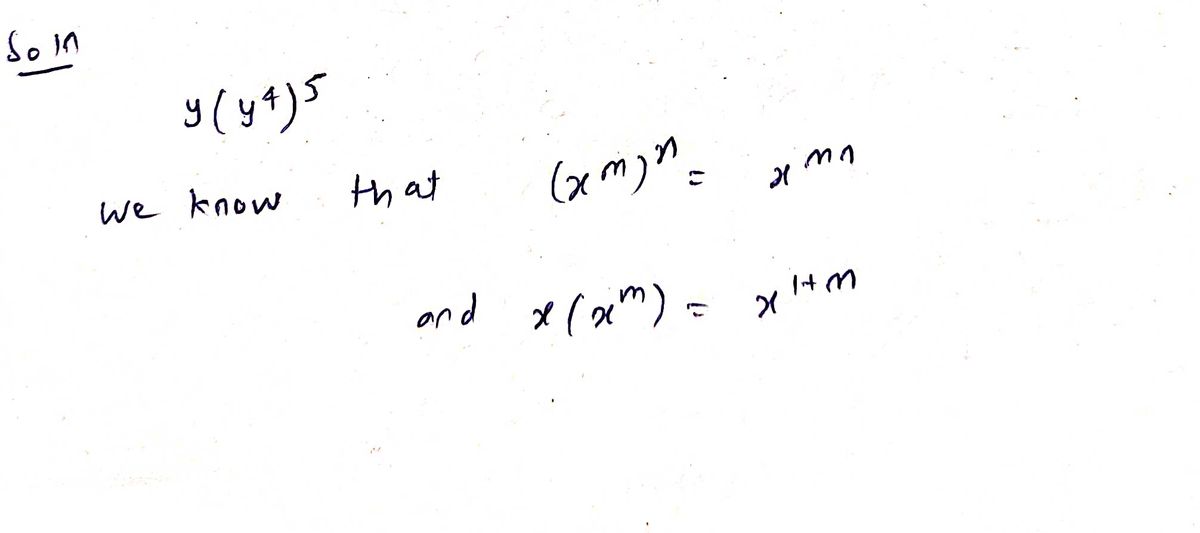 Soln
y(y⁴)⁵
we know that (xᵐ)ⁿ = xᵐⁿ
and x(xᵐ) = x¹⁺ᵐ